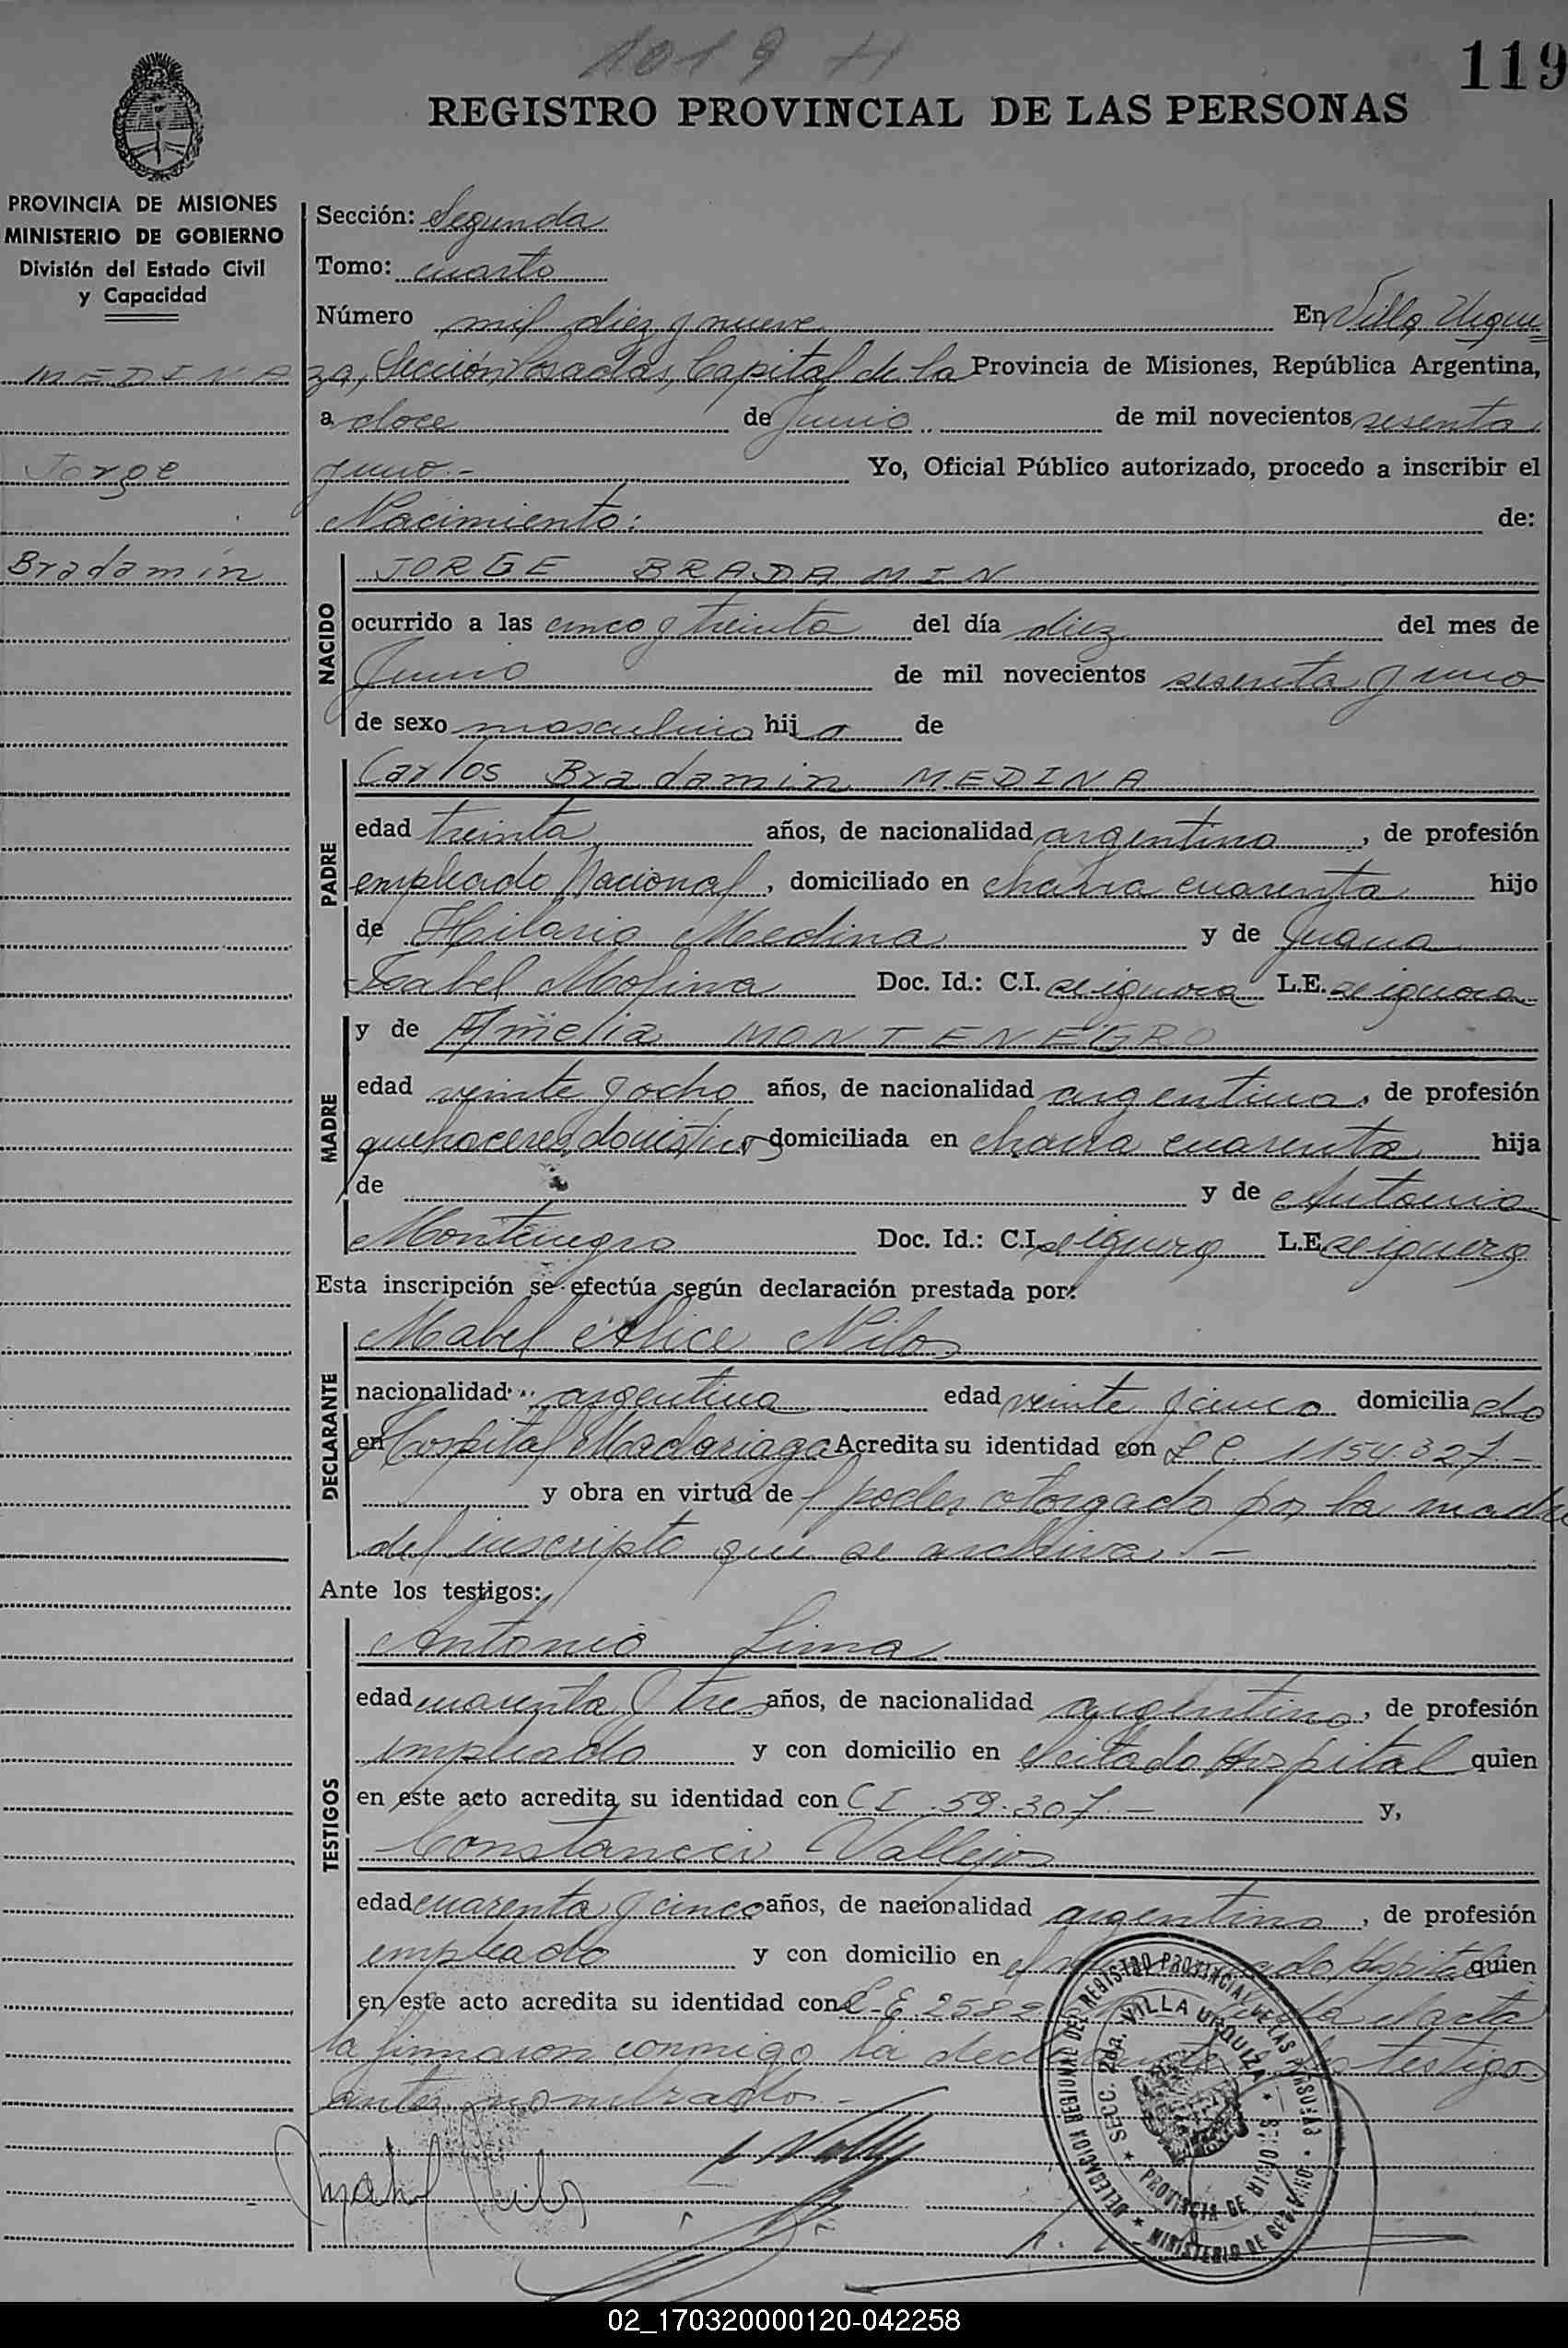 1019 H
119
REGISTRO PROVINCIAL DE LAS PERSONAS
PROVINCIA DE MISIONES
MINISTERIO DE GOBIERNO
División del Estado Civil
y Capacidad
MEDINA
Jorge
Bradamin
Sección: Segunda
Tomo: cuarto
Número mil diez y nueve En Villa Urqui
za, Sección Posadas, Capital de la Provincia de Misiones, República Argentina,
a doce de Junio de mil novecientos sesenta
y uno.- Yo, Oficial Público autorizado, procedo a inscribir el
Nacimiento: de:
NACIDO
JORGE BRADAMIN
ocurrido a las cinco y treinta del día diez del mes de
Junio de mil novecientos sesenta y uno
de sexo masculino hijo de
PADRE
Carlos Bradamin MEDINA
edad treinta años, de nacionalidad argentino, de profesión
empleado Nacional, domiciliado en chacra cuarenta hijo
de Hilario Medina y de Juana
Isabel Molina Doc. Id.: C.I. se ignora L.E. se ignora
MADRE
y de Amelia MONTENEGRO
edad veinte y ocho años, de nacionalidad argentina, de profesión
quehaceres domésticos domiciliada en chacra cuarenta hija
de y de Antonia
Montenegro Doc. Id.: C.I. se ignora L.E. se ignora
Esta inscripción se efectúa según declaración prestada por:
DECLARANTE
Mabel Alice Nilos
nacionalidad argentina edad veinte y cinco domiciliado
en Hospital Madariaga Acredita su identidad con L C. 1154.327.-
y obra en virtud de poder otorgado por la madre
del inscripto que se archiva.-
Ante los testigos:
TESTIGOS
Antonio Lima
edad cuarenta y tres años, de nacionalidad argentino, de profesión
empleado y con domicilio en el citado Hospital quien
en este acto acredita su identidad con C I .59.307.- y,
Constancio Vallejos
edad cuarenta y cinco años, de nacionalidad argentino, de profesión
empleado y con domicilio en el Hospital quien
en este acto acredita su identidad con L.E. el acta
la firmaron conmigo la testigos
antes nombrados.-
DELEGACION REGIONAL DEL REGISTRO PROVINCIAL DE LAS PERSONAS
SECC. 2da. VILLA URQUIZA
PROVINCIA DE MISIONES
MINISTERIO DE GOBIERNO
02_170320000120-042258